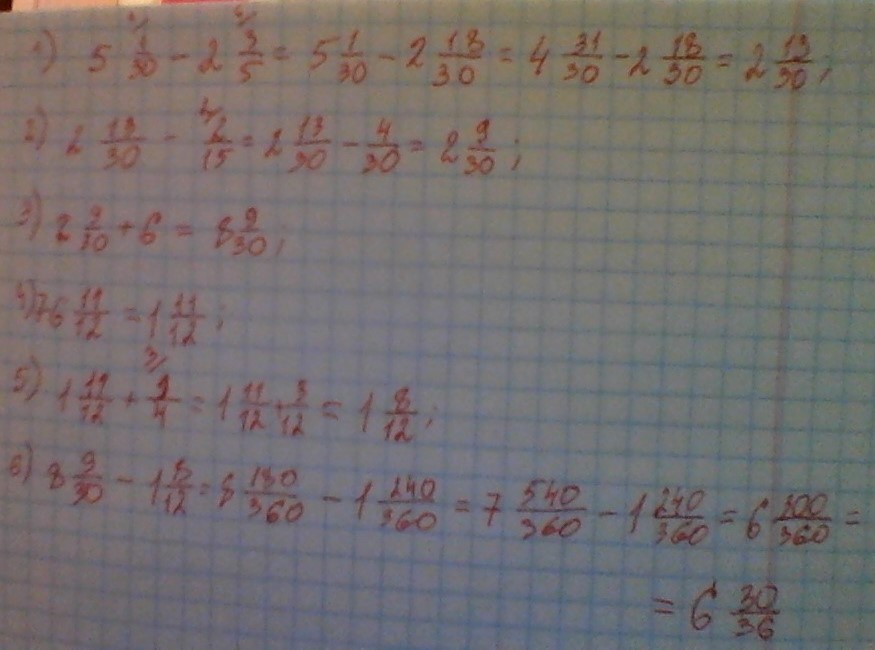 1) 5 1/30 - 2 3/5 = 5 1/30 - 2 18/30 = 4 31/30 - 2 18/30 = 2 13/30;
2) 2 13/30 - 2/15 = 2 13/30 - 4/30 = 2 9/30;
3) 2 9/30 + 6 = 8 9/30;
4) 76 11/12 = 1 11/12;
5) 1 11/12 + 1/4 = 1 11/12 + 3/12 = 1 8/12;
6) 8 9/30 - 1 8/12 = 8 180/360 - 1 240/360 = 7 540/360 - 1 240/360 = 6 300/360 =
= 6 30/36